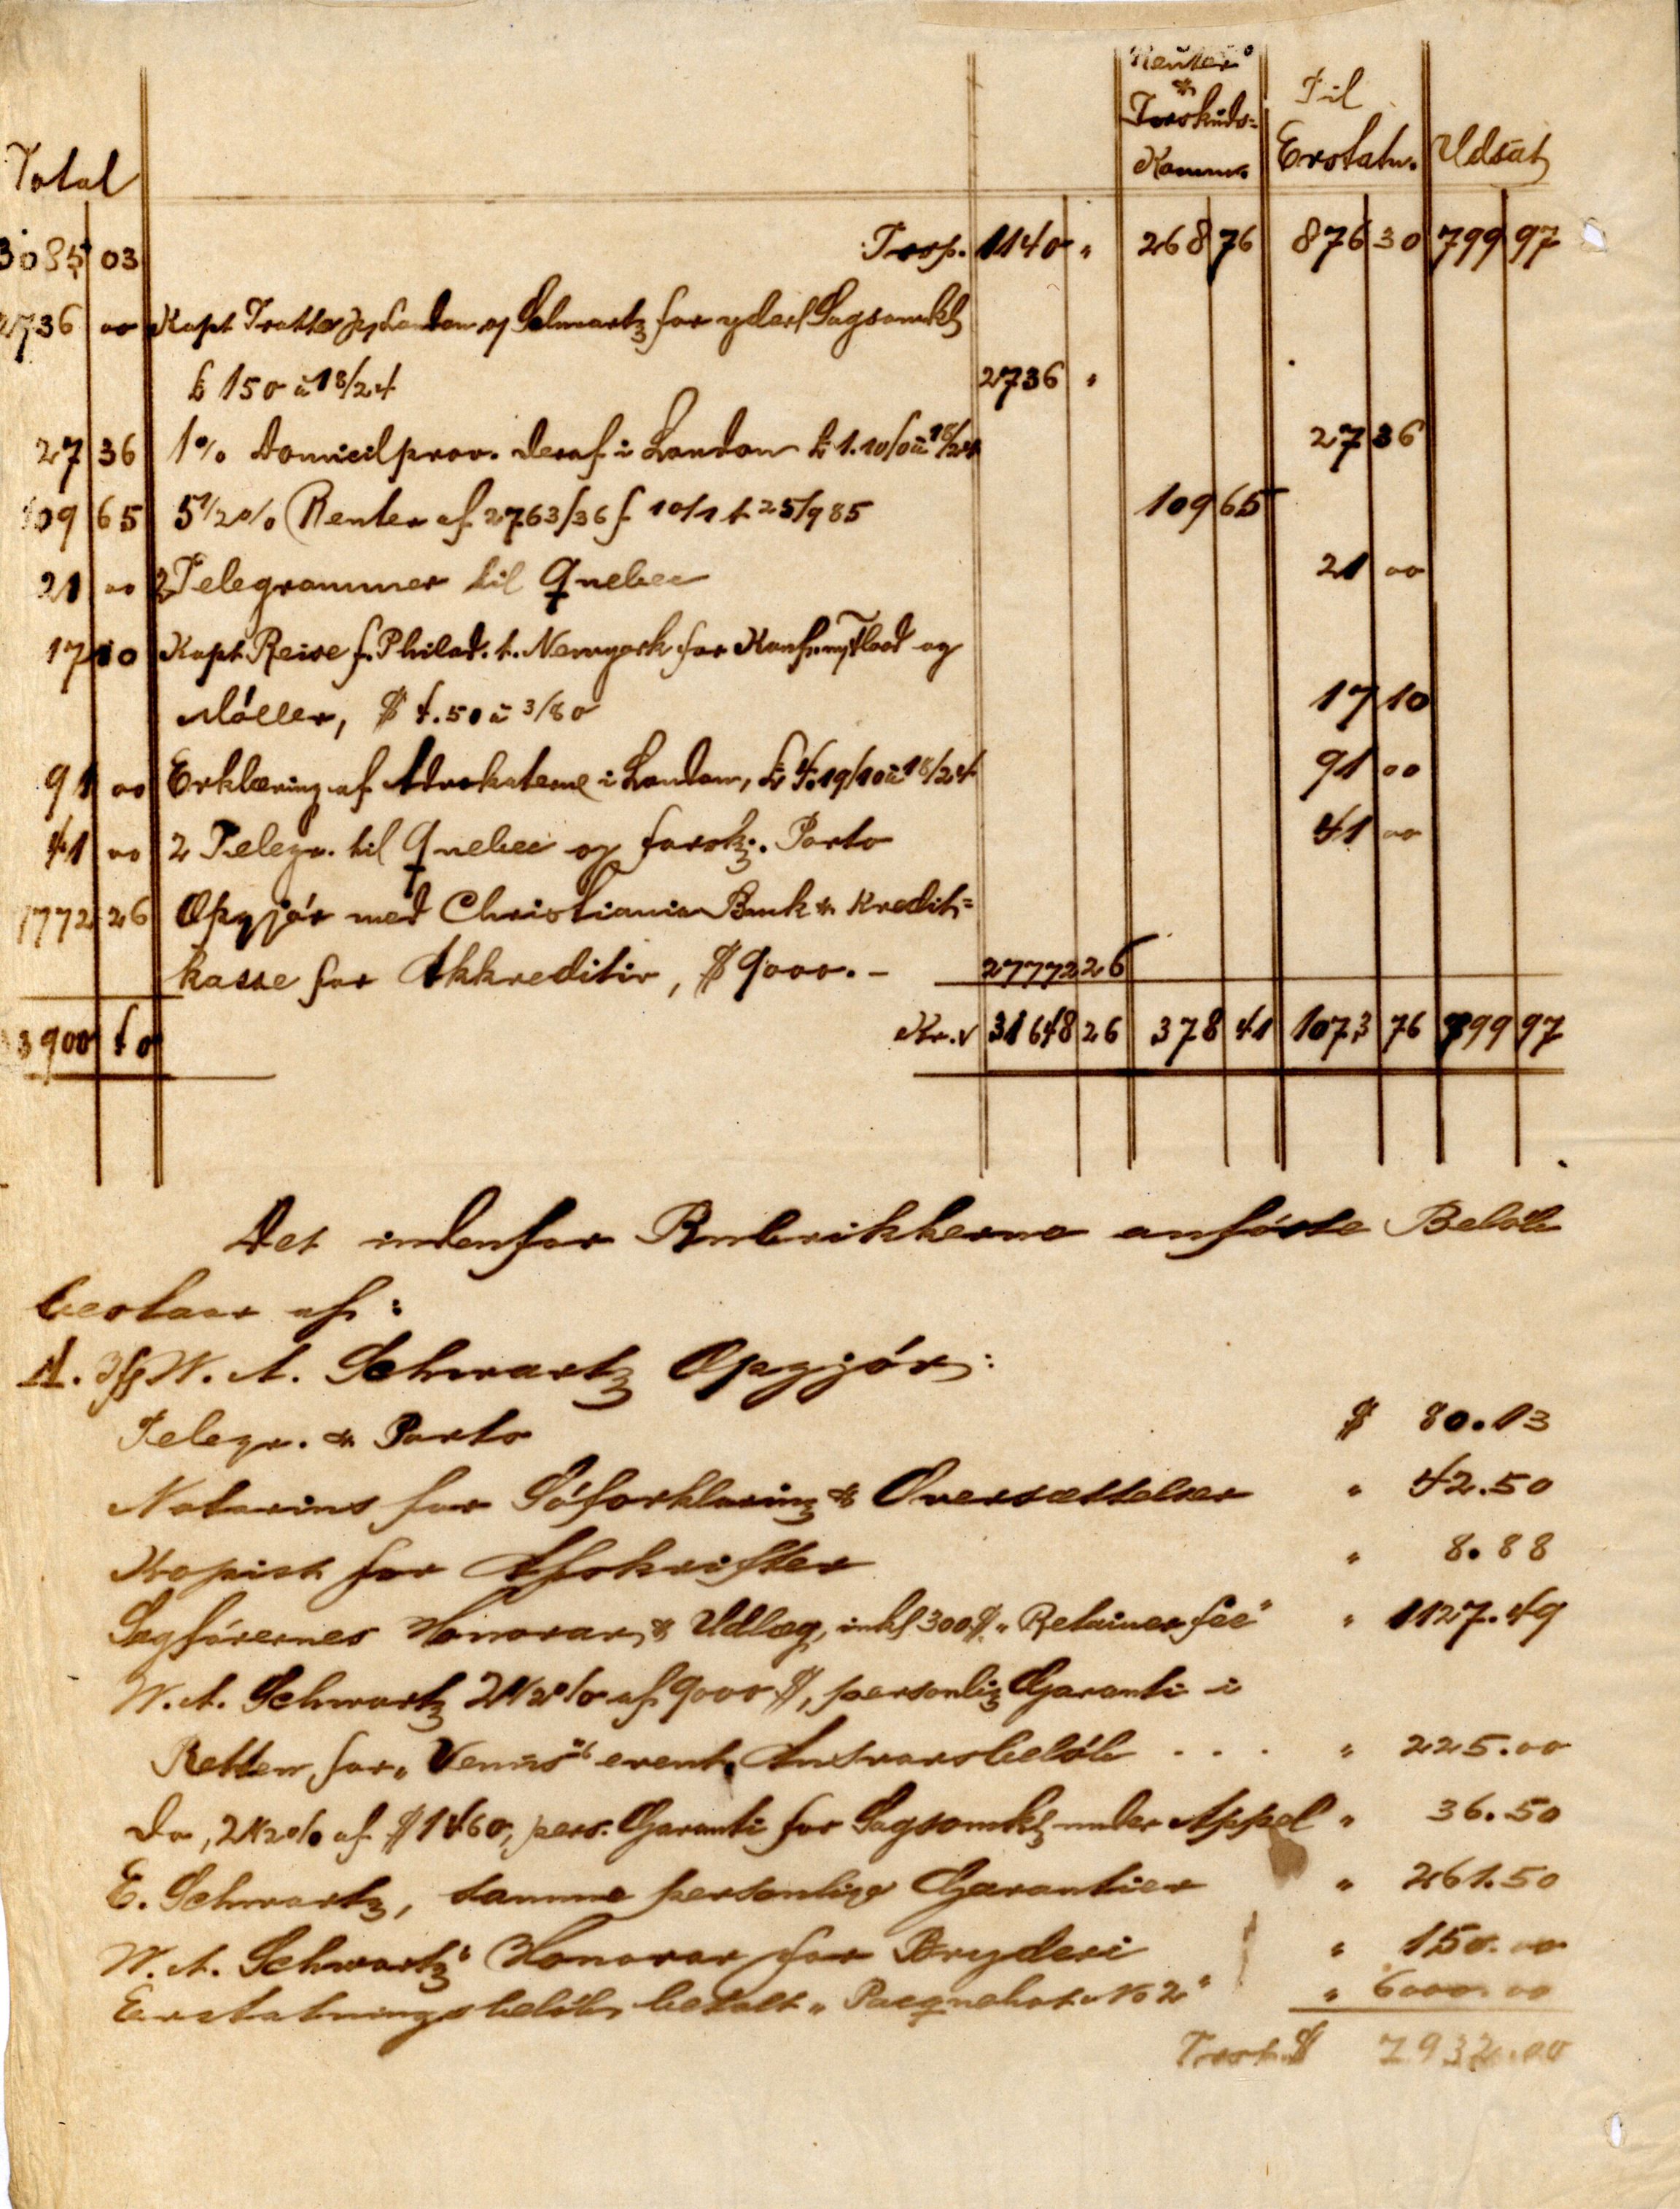 Renter
&
Forskuds=
Komm.
Til
Erstatn.
Udsat
Total
3085 03 Trsp. 1140 " 268 76 876 30 799 97
2736 00 Kapt Tratte på London og Schwartz for yderl Sagsomk
£ 150 à 18/24 2736 "
27 36 1% Domicilprov. deraf i London £ 1.10/0 à 18/24 27 36
109 65 5 1/2 % Renter af 2763/36 f 10/1 t 25/9 85 109 65
21 00 2 Telegrammer til Quebec 21 00
17 10 Kapt. Reise f. Philad. t. Newyork for Konf. m/ Flood og
Möller, $ 4.50 à 3/80 17 10
91 00 Erklæring af Advokaterne i London, £ 4.19/10 à 18/24 91 00
41 00 2 Telegr. til Quebec og forskj. Porto 41 00
7772 26 Opgjör med Christiania Bank & Kredit=
kasse for Akkreditiv, $ 9000.- 27772 26
3900 40 Kr. 31648 26 378 41 1073 76 799 97
Det indenfor Rubrikkerne anförte Belöb
bestaar af:
A. Ifg W. A. Schwartz Opgjör:
Telegr. & Porto $ 80.13
Notarius for Söforklaring & Oversættelser " 42.50
Kopist for Afskrifter " 8.88
Sagförernes Honorar & Udlæg, inkl 300 $ "Retainer fee" " 1127.49
W. A. Schwartz 2 1/2 % af 9000 $, personlig Garanti i
Retten for "Venus" event. Ansvarsbelöb . . . " 225.00
Do, 2 1/2 % af $ 1460, pers. Garanti for Sagsomk under Appel " 36.50
E. Schwartz, samme personlige Garantier " 261.50
W. A. Schwartz' Honorar for Bryderi " 150.00
Erstatningsbelöb betalt "Pacquebot No 2" " 6000.00
Trsp. $ 7932.00